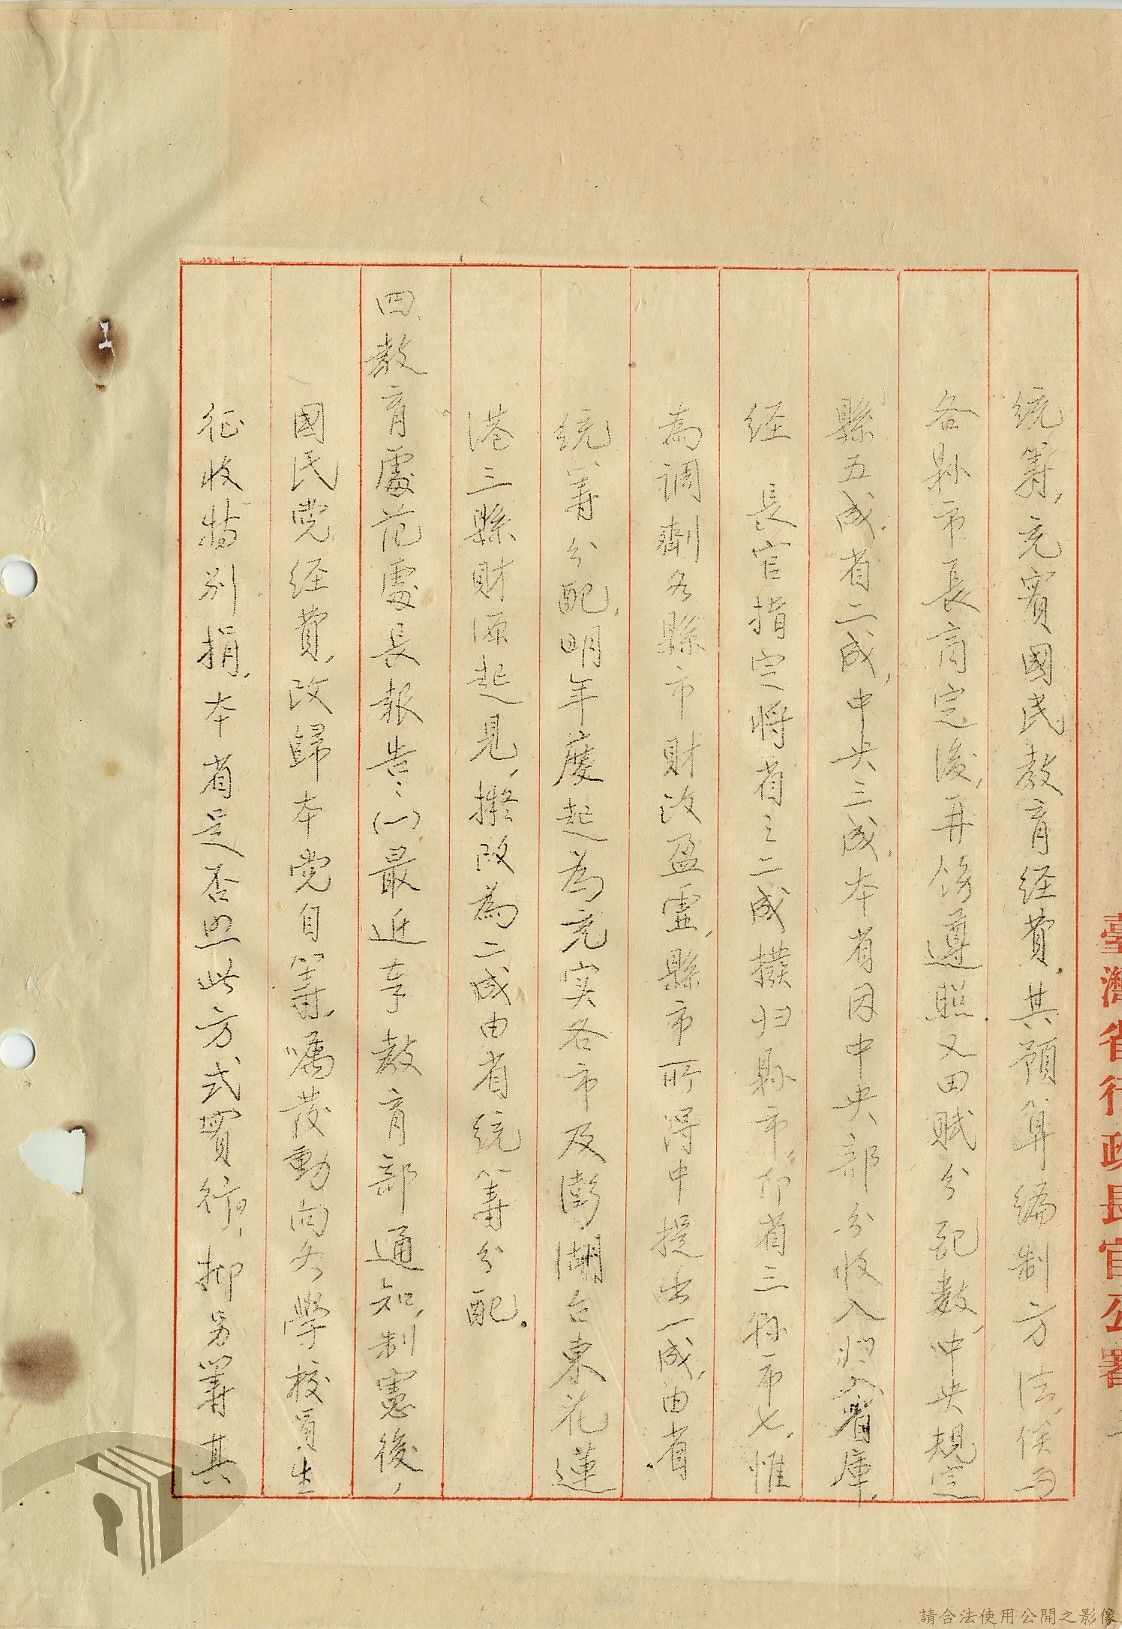 統籌，充實國民教育经費，其預算编制方法，俟与
各縣市長商定後，再飭遵照又田賦分配數，中央規定
縣五成，省二成，中央三成，本省因中央部分收入归入省庫，
经　長官指定將省之二成撥归縣市，即省三縣市七，惟
為調劑各縣市財政盈虛，縣市所得中提出一成，由省
統籌分配，明年度起為充实各市及澎湖台東花蓮
港三縣財源起見，擬改為二成由省統籌分配。
四、教育處范處長報告：(一)最近奉教育部通知，制憲後，
國民党经費，改歸本党自籌，嘱發動向各學校員生
征收特别捐，本省是否照此方式實行，抑另籌其
臺灣省行政長官公署
請合法使用公開之影像